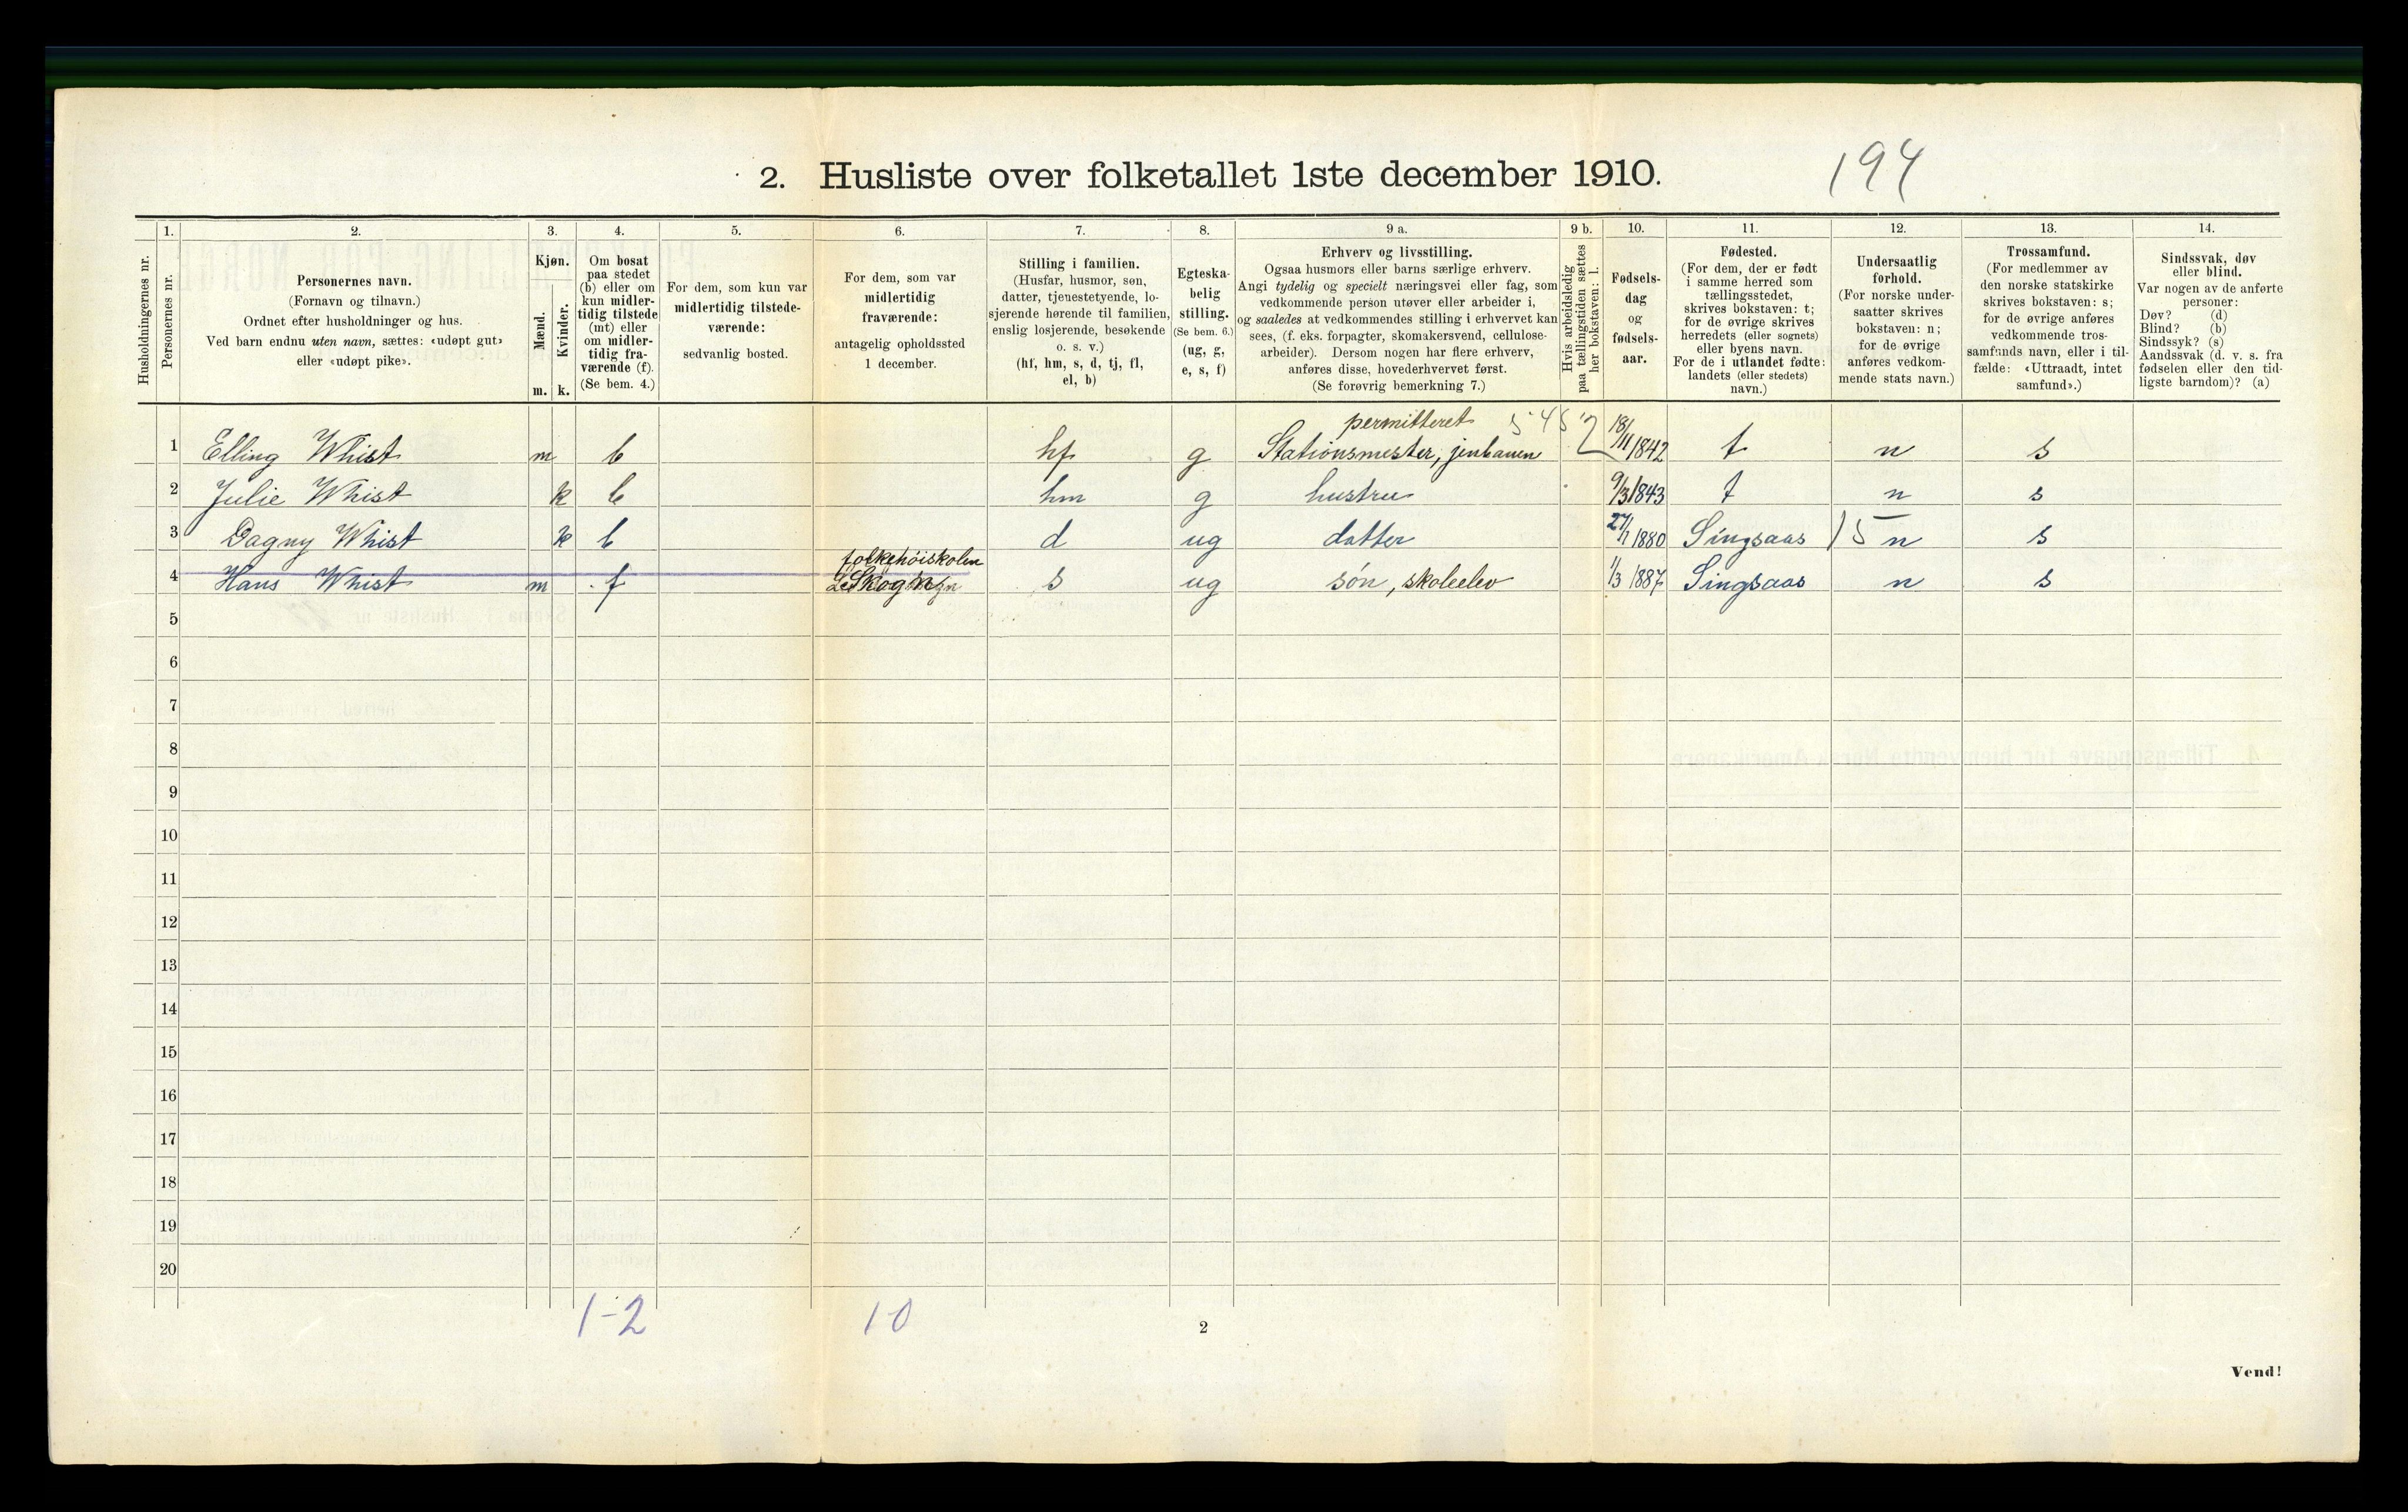 2. Husliste over folketallet 1ste december 1910.
194
Husholdningernes nr.
1.
Personernes nr.
2.
Personernes navn.
(Fornavn og tilnavn.)
Ordnet efter husholdninger og hus.
Ved barn endnu uten navn, sættes: «udøpt gut»
eller «udøpt pike».
3.
Kjøn.
Mænd.
Kvinder.
m. k.
4.
Om bosat
paa stedet
(b) eller om
kun midler-
tidig tilstede
(mt) eller
om midler-
tidig fra-
værende (f).
(Se bem. 4.)
5.
For dem, som kun var
midlertidig tilstede-
værende:
sedvanlig bosted.
6.
For dem, som var
midlertidig
fraværende:
antagelig opholdssted
1 december.
7.
Stilling i familien.
(Husfar, husmor, søn,
datter, tjenestetyende, lo-
sjerende hørende til familien,
enslig losjerende, besøkende
o. s. v.)
(hf, hm, s, d, tj, fl,
el, b)
8.
Egteska-
belig
stilling.
(Se bem. 6.)
(ug, g,
e, s, f)
9 a.
Erhverv og livsstilling.
Ogsaa husmors eller barns særlige erhverv.
Angi tydelig og specielt næringsvei eller fag, som
vedkommende person utøver eller arbeider i,
og saaledes at vedkommendes stilling i erhvervet kan
sees, (f. eks. forpagter, skomakersvend, cellulose-
arbeider). Dersom nogen har flere erhverv,
anføres disse, hovederhvervet først.
(Se forøvrig bemerkning 7.)
9 b.
Hvis arbeidsledig
paa tællingstiden sættes
her bokstaven: l.
10.
Fødsels-
dag
og
fødsels-
aar.
11.
Fødested.
(For dem, der er født
i samme herred som
tællingsstedet,
skrives bokstaven: t;
for de øvrige skrives
herredets (eller sognets)
eller byens navn.
For de i utlandet fødte:
landets (eller stedets)
navn.)
12.
Undersaatlig
forhold.
(For norske under-
saatter skrives
bokstaven: n;
for de øvrige
anføres vedkom-
mende stats navn.)
13.
Trossamfund.
(For medlemmer av
den norske statskirke
skrives bokstaven: s;
for de øvrige anføres
vedkommende tros-
samfunds navn, eller i til-
fælde: «Uttraadt, intet
samfund».)
14.
Sindssvak, døv
eller blind.
Var nogen av de anførte
personer:
Døv? (d)
Blind? (b)
Sindssyk? (s)
Aandssvak (d. v. s. fra
fødselen eller den tid-
ligste barndom)? (a)
permitteret 5452
1 Elling Whist m b hf g Stationsmester, jenbanen 18/11 1842 t n s
2 Julie Whist k b hm g hustru 9/3 1843 t n s
3 Dagny Whist k b d ug datter 27/1 1880 Singsaas 15 n s
folkehøiskolen
4 Hans Whist m f Skogn s ug søn, skoleelev 1/3 1887 Singsaas n s
5
6
7
8
9
10
11
12
13
14
15
16
17
18
19
20
1-2 10
2
Vend!